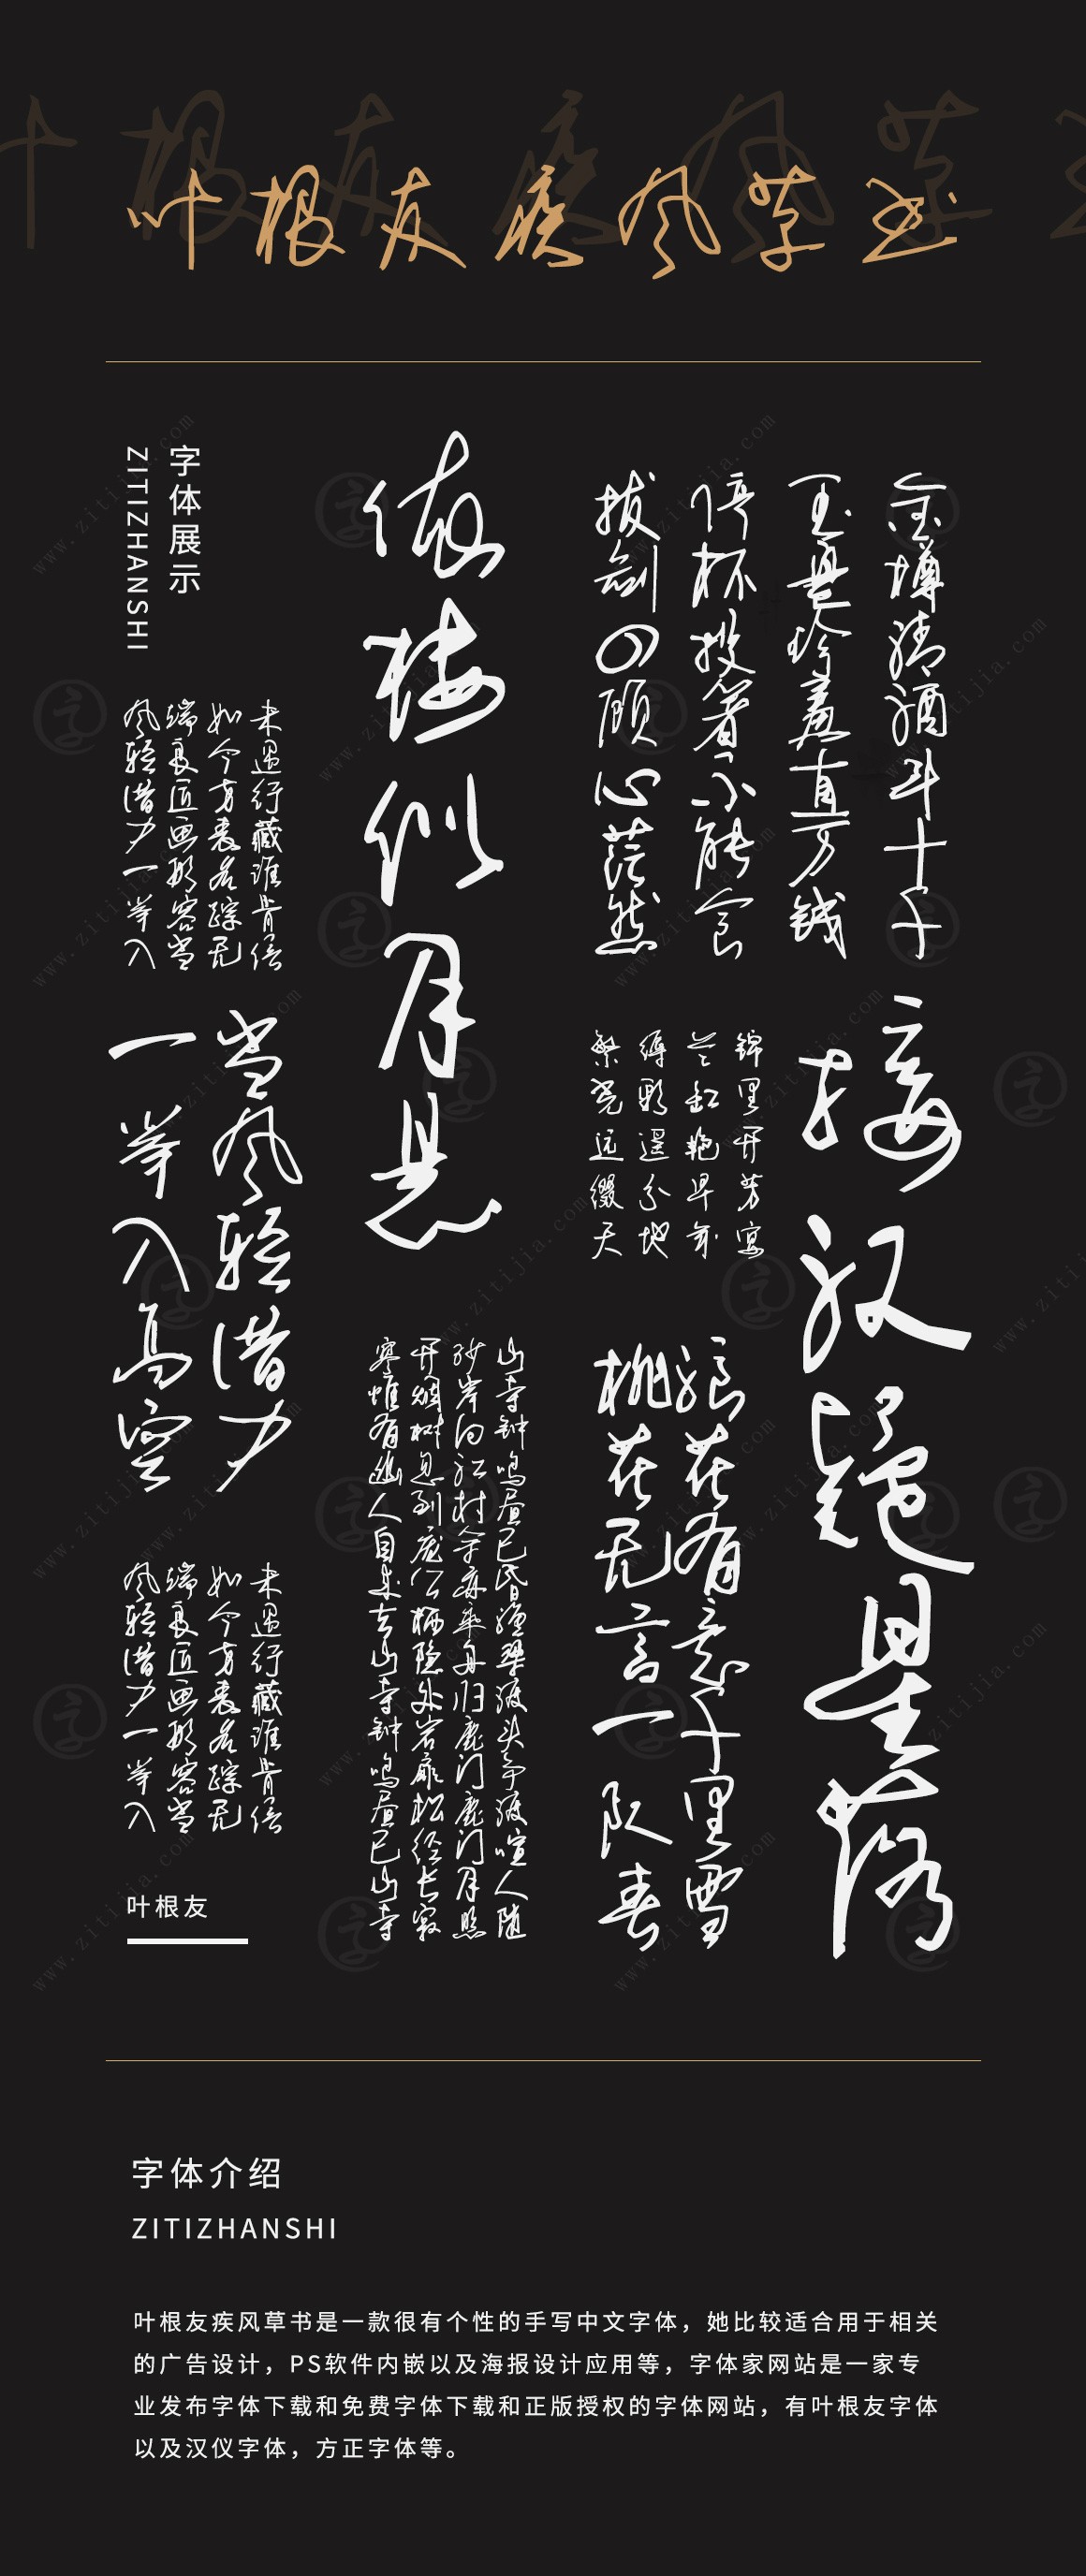 叶根友疾风草书
字体展示
ZITIZHANSHI
金樽清酒斗十千
玉盘珍羞直万钱
停杯投箸不能食
拔剑四顾心茫然
接汉疑星落
锦里开芳宴
兰缸艳早年
缛彩遥分地
繁光远缀天
浪花有意千里雪
桃花无言一队春
依楼似月悬
山寺钟鸣昼已昏渔梁渡头争渡喧人随
沙岸向江村余亦乘舟归鹿门鹿门月照
开烟树忽到庞公栖隐处岩扉松径长寂
寥惟有幽人自来去山寺钟鸣昼已山寺
未遇行藏谁肯信
如今方表名踪无
端良匠画形容当
风轻借力一举入
当风轻借力
一举入高空
未遇行藏谁肯信
如今方表名踪无
端良匠画形容当
风轻借力一举入
叶根友
字体介绍
ZITIZHANSHI
叶根友疾风草书是一款很有个性的手写中文字体，她比较适合用于相关
的广告设计，PS软件内嵌以及海报设计应用等，字体家网站是一家专
业发布字体下载和免费字体下载和正版授权的字体网站，有叶根友字体
以及汉仪字体，方正字体等。
www.zitijia.com